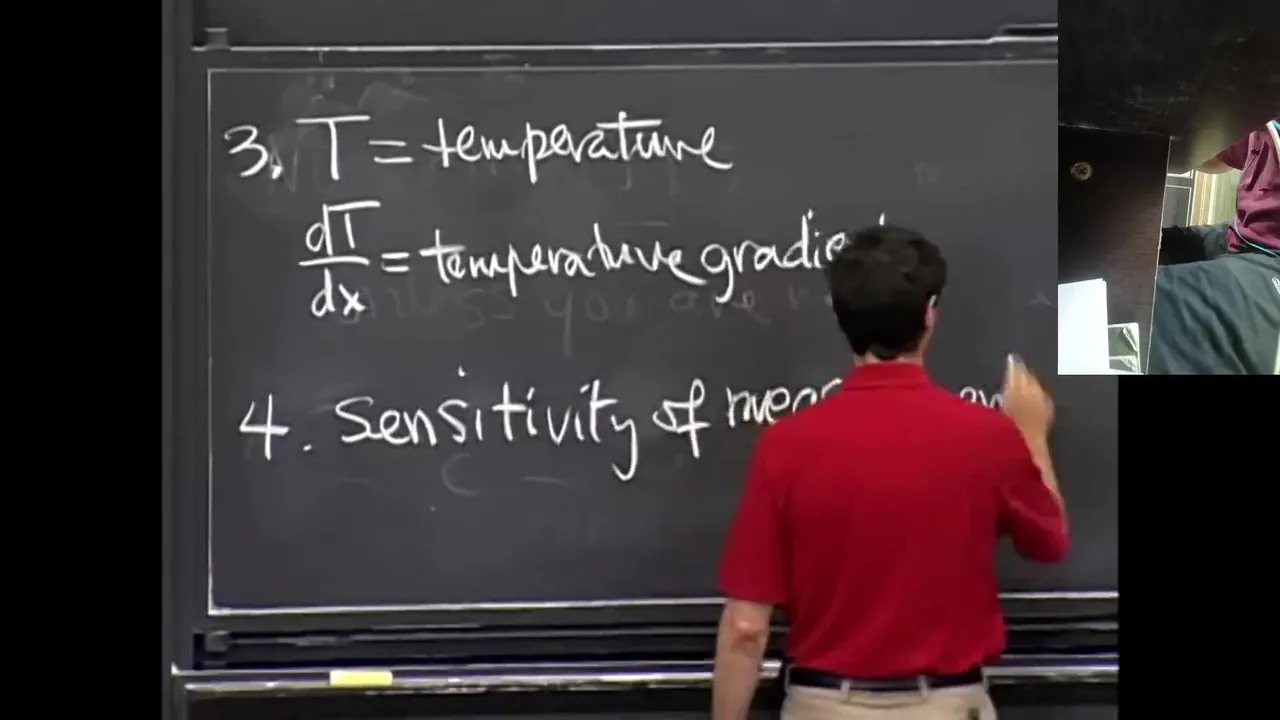 3. T = temperature
dT/dx = temperature gradient
4. Sensitivity of